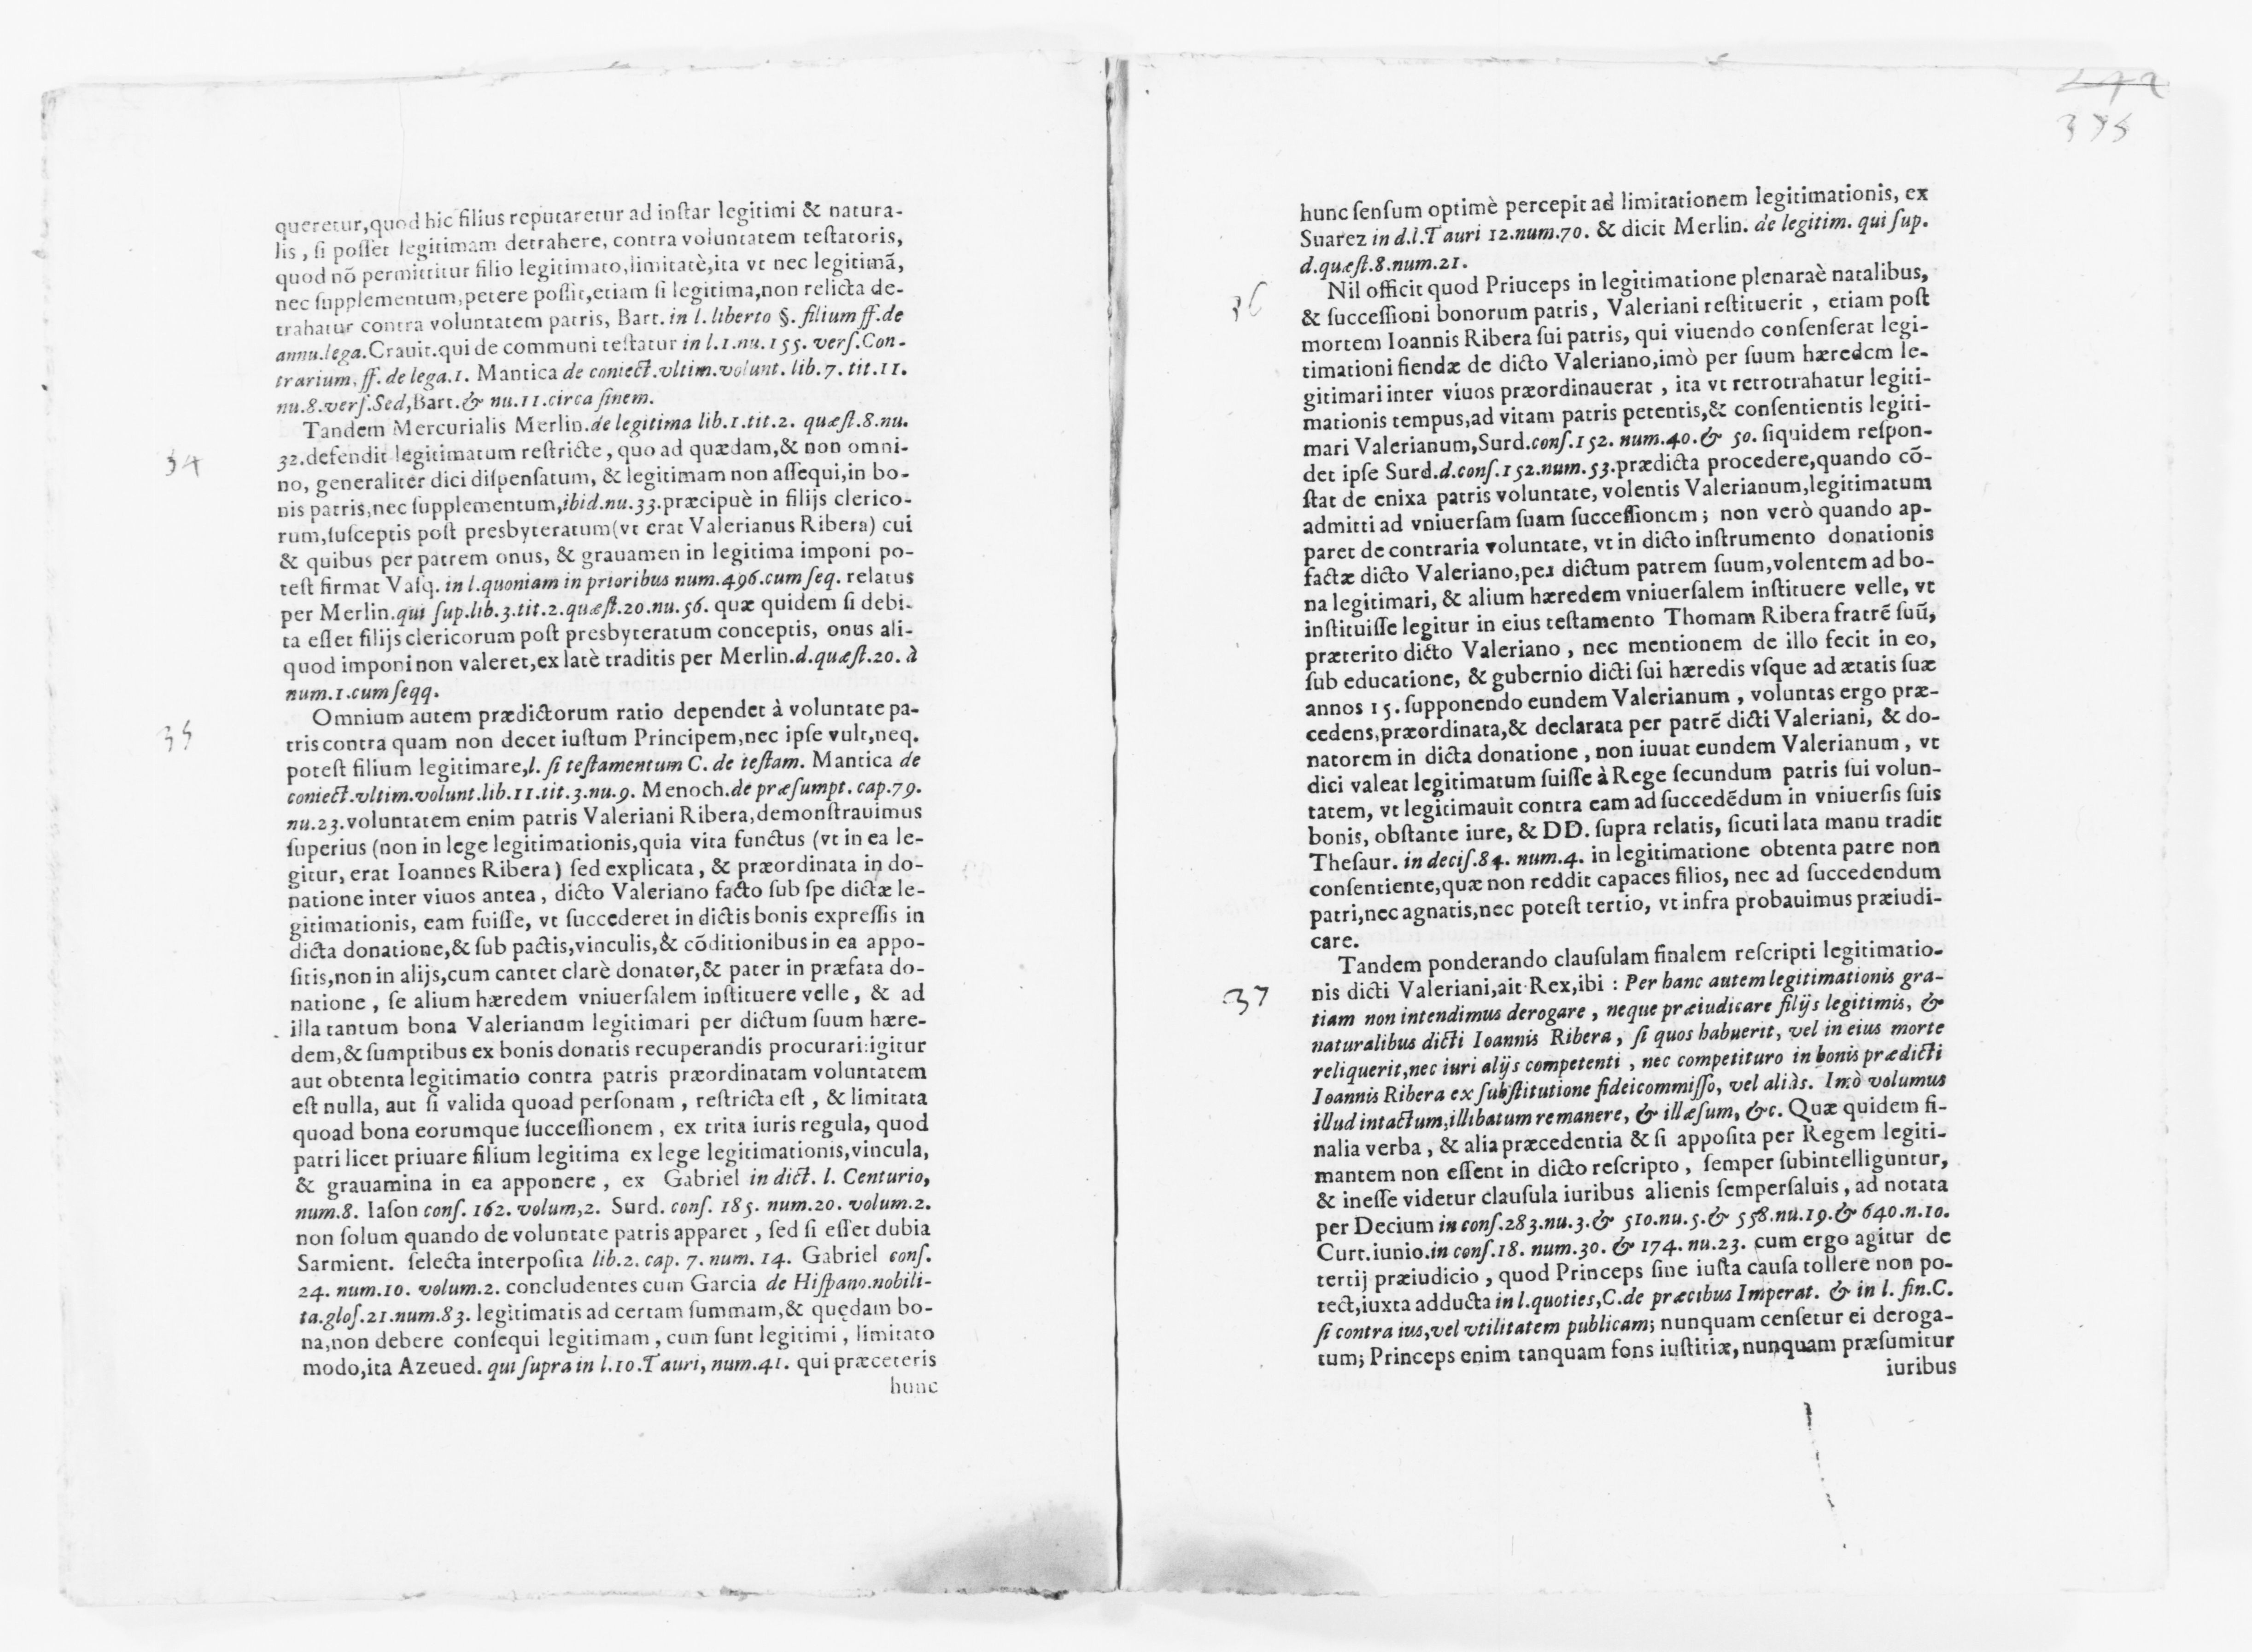 queretur,quod hic filius reputaretur ad inſtar legitimi & natura-
lis , ſi poſſet legitimam detrahere, contra voluntatem teſtatoris,
quod nõ permittitur filio legitimato,limitatè,ita vt nec legitimã,
nec ſupplementum,petere poſſit,etiam ſi legitima,non relicta de-
trahatur contra voluntatem patris, Bart. in l. liberto §. filium ff.de
annu.lega.Crauit.qui de communi teſtatur in l.1.nu.155. verſ.Con-
trarium, ff. de lega.1. Mantica de coniect.vltim.volunt. lib.7. tit.11.
nu.8.verſ.Sed,Bart.& nu.11.circa finem.
34
Tandem Mercurialis Merlin.de legitima lib.1.tit.2. quæſt.8.nu.
32.defendit legitimatum reſtricte, quo ad quædam,& non omni-
no, generaliter dici diſpenſatum, & legitimam non aſſequi,in bo-
nis patris,nec ſupplementum,ibid.nu.33.præcipuè in filijs clerico-
rum,ſuſceptis poſt presbyteratum(vt erat Valerianus Ribera) cui
& quibus per patrem onus, & grauamen in legitima imponi po-
teſt firmat Vaſq. in l.quoniam in prioribus num.496.cum ſeq. relatus
per Merlin.qui ſup.lib.3.tit.2.quæſt.20.nu.56. quæ quidem ſi debi-
ta eſſet filijs clericorum poſt presbyteratum conceptis, onus ali-
quod imponi non valeret,ex latè traditis per Merlin.d.quæſt.20. à
num.1.cum ſeqq.
35
Omnium autem prædictorum ratio dependet à voluntate pa-
tris contra quam non decet iuſtum Principem,nec ipſe vult,neq.
poteſt filium legitimare,l. ſi teſtamentum C. de teſtam. Mantica de
coniect.vltim.volunt.lib.11.tit.3.nu.9. Menoch.de præſumpt. cap.79.
nu.23.voluntatem enim patris Valeriani Ribera,demonſtrauimus
ſuperius (non in lege legitimationis,quia vita functus (vt in ea le-
gitur, erat Ioannes Ribera) ſed explicata, & præordinata in do-
natione inter viuos antea, dicto Valeriano facto ſub ſpe dictæ le-
gitimationis, eam fuiſſe, vt ſuccederet in dictis bonis expreſſis in
dicta donatione,& ſub pactis,vinculis,& cõditionibus in ea appo-
ſitis,non in alijs,cum cantet clarè donator,& pater in præfata do-
natione , ſe alium hæredem vniuerſalem inſtituere velle, & ad
illa tantum bona Valerianum legitimari per dictum ſuum hære-
dem,& ſumptibus ex bonis donatis recuperandis procurari:igitur
aut obtenta legitimatio contra patris præordinatam voluntatem
eſt nulla, aut ſi valida quoad perſonam , reſtricta eſt , & limitata
quoad bona eorumque ſucceſſionem , ex trita iuris regula, quod
patri licet priuare filium legitima ex lege legitimationis,vincula,
& grauamina in ea apponere , ex Gabriel in dict. l. Centurio,
num.8. Iaſon conſ. 162. volum,2. Surd. conſ. 185. num.20. volum.2.
non ſolum quando de voluntate patris apparet , ſed ſi eſſet dubia
Sarmient. ſelecta interpoſita lib.2. cap. 7. num. 14. Gabriel conſ.
24. num.10. volum.2. concludentes cum Garcia de Hiſpano.nobili-
ta.gloſ.21.num.83. legitimatis ad certam ſummam,& quędam bo-
na,non debere conſequi legitimam , cum ſunt legitimi , limitato
modo,ita Azeued. qui ſupra in l.10.Tauri, num.41. qui præceteris
hunc
242
375
hunc ſenſum optimè percepit ad limitationem legitimationis, ex
Suarez in d.l.Tauri 12.num.70. & dicit Merlin. de legitim. qui ſup.
d.quæſt.8.num.21.
36
Nil officit quod Priuceps in legitimatione plenaraè natalibus,
& ſucceſſioni bonorum patris, Valeriani reſtituerit , etiam poſt
mortem Ioannis Ribera ſui patris, qui viuendo conſenſerat legi-
timationi fiendæ de dicto Valeriano,imò per ſuum hæredem le-
gitimari inter viuos præordinauerat , ita vt retrotrahatur legiti-
mationis tempus,ad vitam patris petentis,& conſentientis legiti-
mari Valerianum,Surd.conſ.152. num.40.& 50. ſiquidem reſpon-
det ipſe Surd.d.conſ.152.num.53.prædicta procedere,quando cõ-
ſtat de enixa patris voluntate, volentis Valerianum,legitimatum
admitti ad vniuerſam ſuam ſucceſſionem; non verò quando ap-
paret de contraria voluntate, vt in dicto inſtrumento donationis
factæ dicto Valeriano,per dictum patrem ſuum,volentem ad bo-
na legitimari, & alium hæredem vniuerſalem inſtituere velle, vt
inſtituiſſe legitur in eius teſtamento Thomam Ribera fratrẽ ſuũ,
præterito dicto Valeriano , nec mentionem de illo fecit in eo,
ſub educatione, & gubernio dicti ſui hæredis vſque ad ætatis ſuæ
annos 15. ſupponendo eundem Valerianum , voluntas ergo præ-
cedens,præordinata,& declarata per patrẽ dicti Valeriani, & do-
natorem in dicta donatione , non iuuat eundem Valerianum , vt
dici valeat legitimatum fuiſſe à Rege ſecundum patris ſui volun-
tatem, vt legitimauit contra eam ad ſuccedẽdum in vniuerſis ſuis
bonis, obſtante iure, & DD. ſupra relatis, ſicuti lata manu tradit
Theſaur. in deciſ.84. num.4. in legitimatione obtenta patre non
conſentiente,quæ non reddit capaces filios, nec ad ſuccedendum
patri,nec agnatis,nec poteſt tertio, vt infra probauimus præiudi-
care.
37
Tandem ponderando clauſulam finalem reſcripti legitimatio-
nis dicti Valeriani,ait Rex,ibi : Per hanc autem legitimationis gra-
tiam non intendimus derogare , neque præiudicare filijs legitimis, &
naturalibus dicti Ioannis Ribera , ſi quos habuerit, vel in eius morte
reliquerit,nec iuri alijs competenti , nec competituro in bonis prædicti
Ioannis Ribera ex ſubſtitutione fideicommiſſo, vel aliàs. Imò volumus
illud intactum,illibatum remanere, & illæſum, &c. Quæ quidem fi-
nalia verba , & alia præcedentia & ſi appoſita per Regem legiti-
mantem non eſſent in dicto reſcripto , ſemper ſubintelliguntur,
& ineſſe videtur clauſula iuribus alienis ſemperſaluis , ad notata
per Decium in conſ.283.nu.3.& 510.nu.5.& 558.nu.19.& 640.n.10.
Curt.iunio.in conſ.18. num.30. & 174. nu.23. cum ergo agitur de
tertij præiudicio , quod Princeps ſine iuſta cauſa tollere non po-
tect,iuxta adducta in l.quoties,C.de præcibus Imperat. & in l. fin.C.
ſi contra ius,vel vtilitatem publicam; nunquam cenſetur ei deroga-
tum; Princeps enim tanquam fons iuſtitiæ, nunquam præſumitur
iuribus